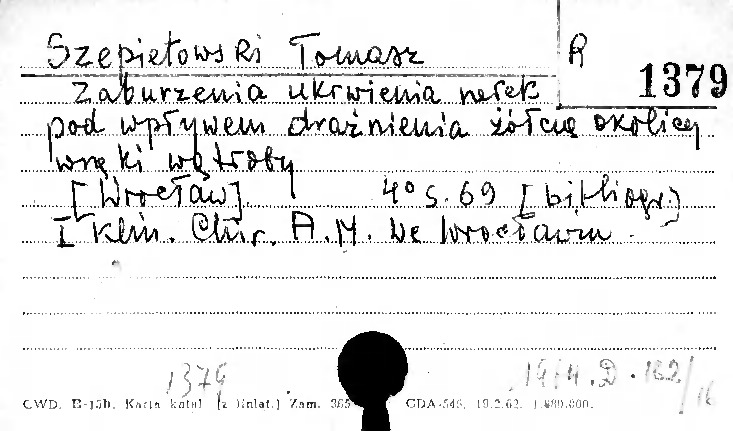 Szepietowski Tomasz R 1379
Zaburzenia ukrwienia nerek
pod wpływem drażnienia żółcią okolicy
wnęki wątroby
[Wrocław] 4° s. 69 [bibliogr.]
I Klin. Chir. A.M. we Wrocławiu.
1379
CWD. E-15b. Karta katal. (z Zam. 355 GDA-546. 19.2.62. 1.800.000.